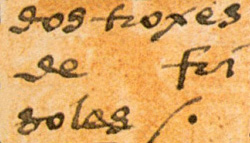 dos troxes
de fri
soles /.